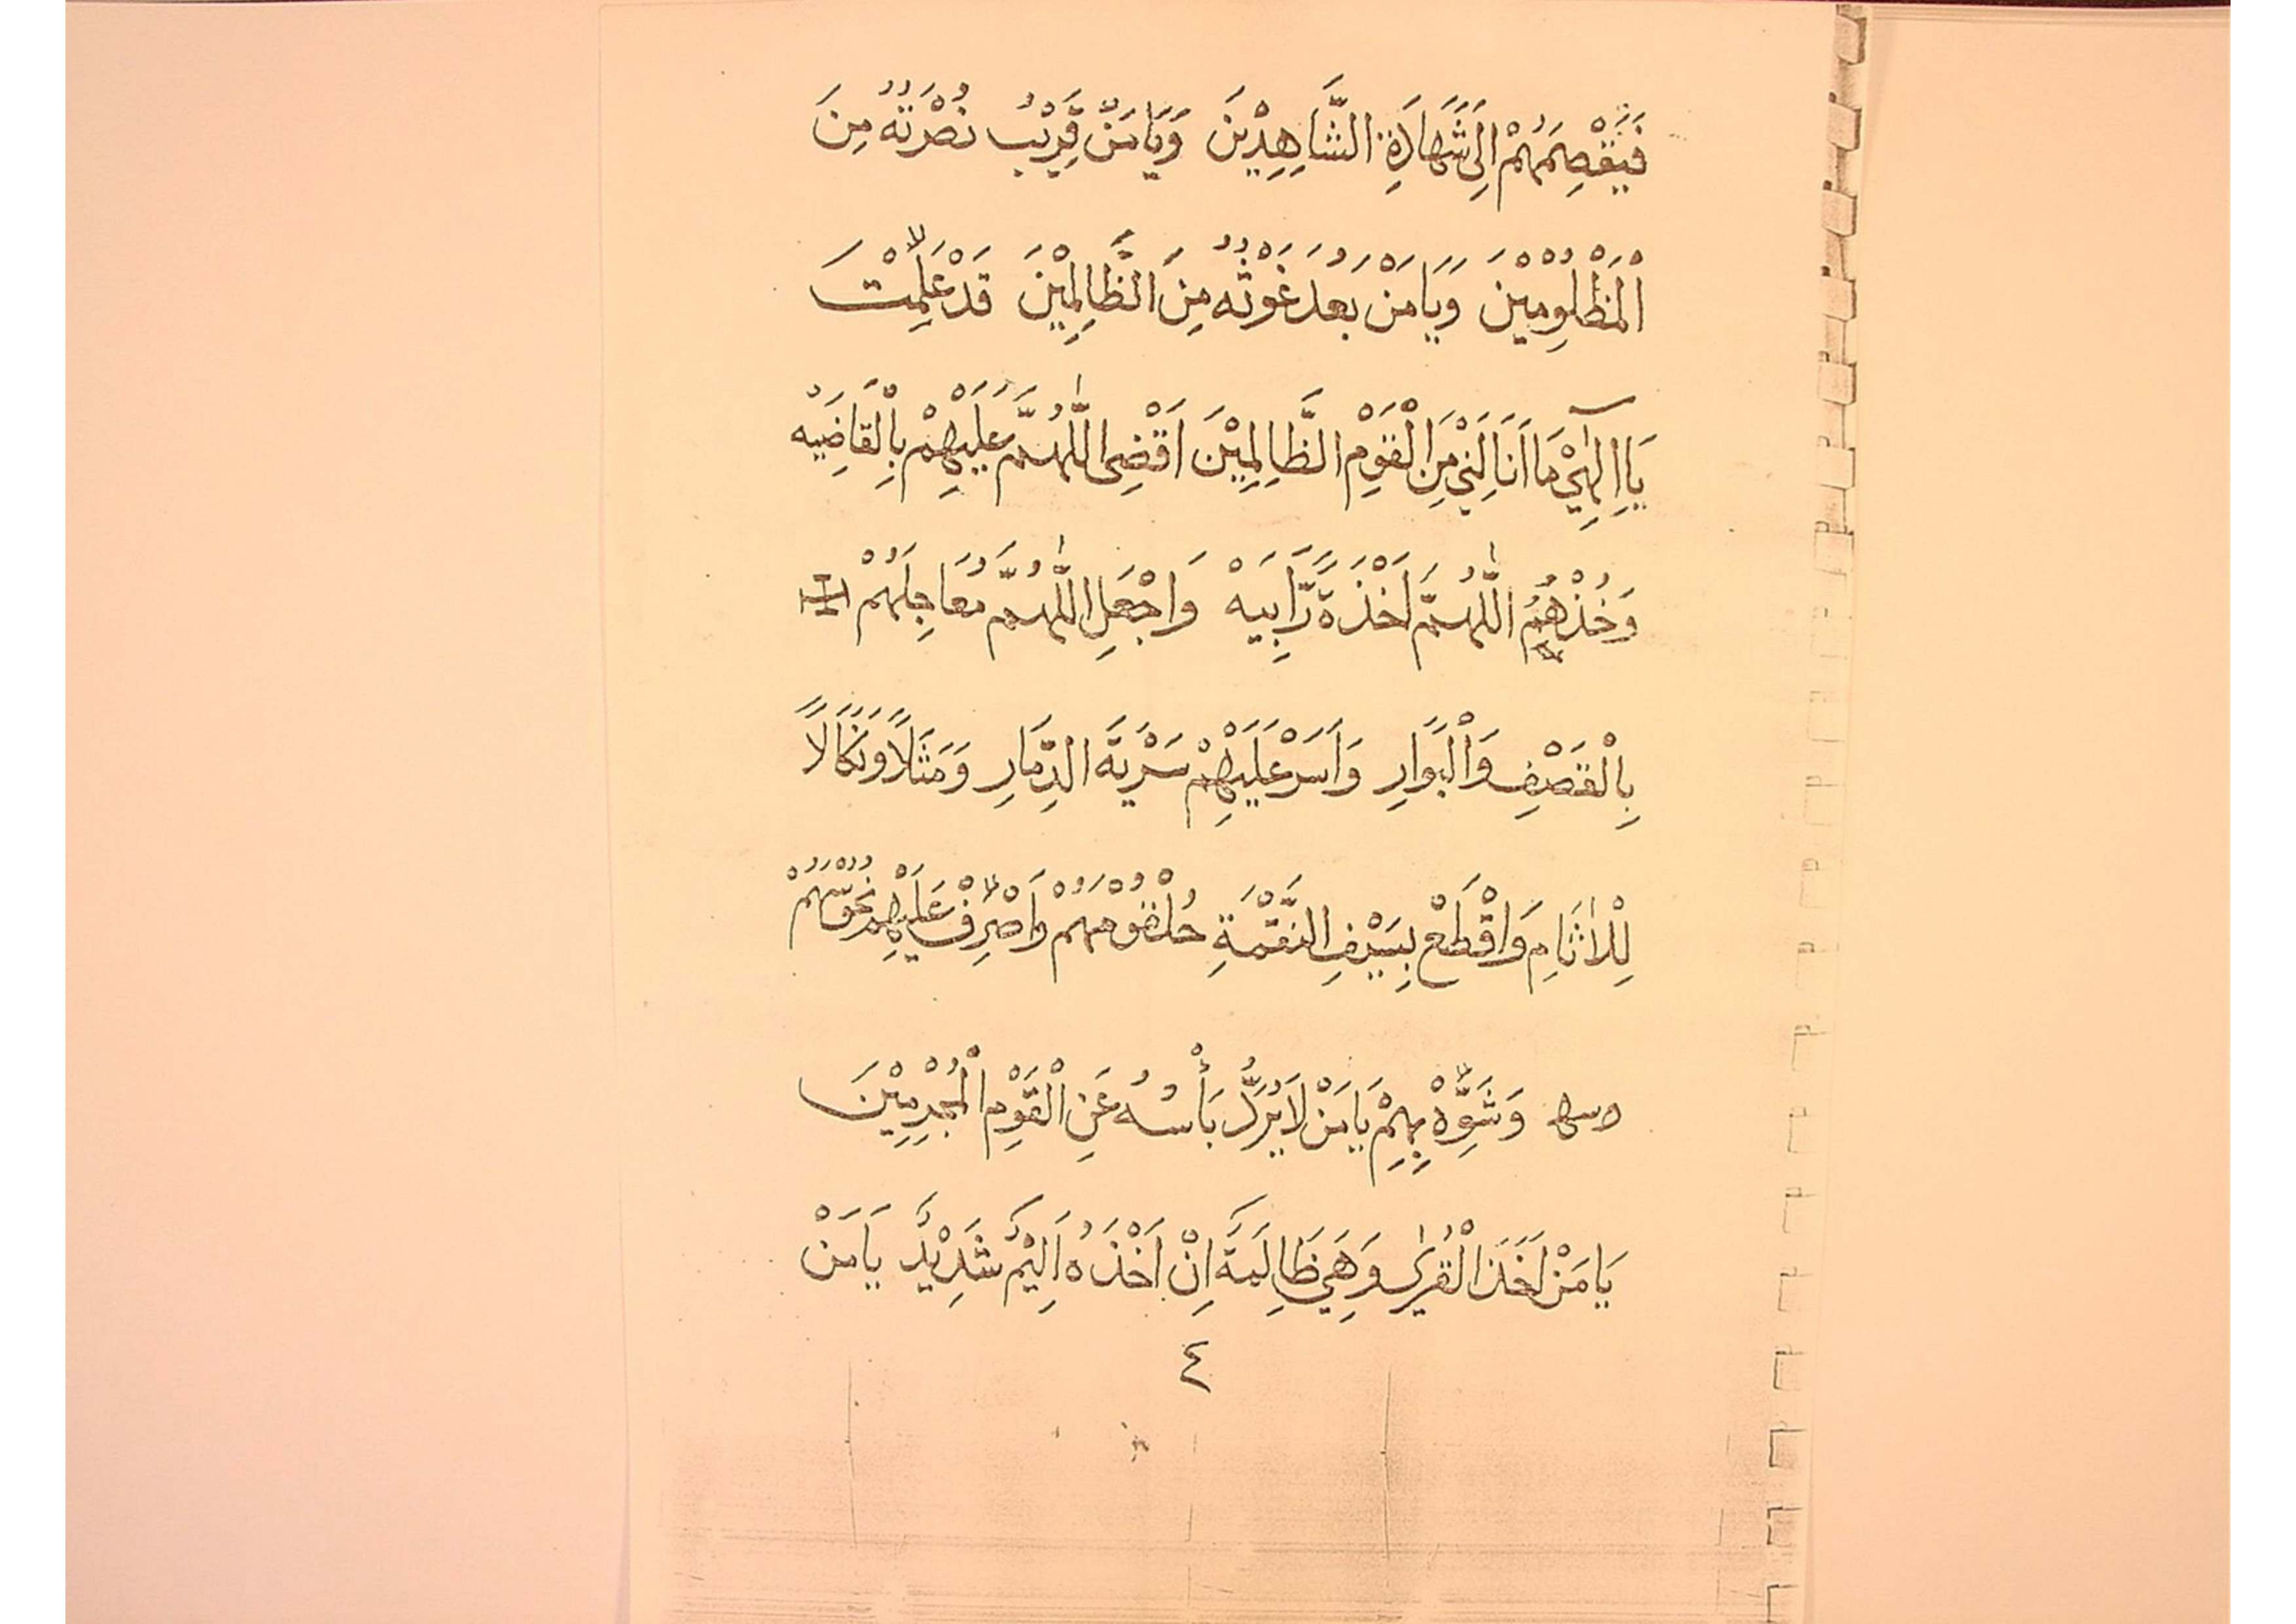 فَيَقْصِمَهُمْ اِلَى شَهَادَةِ الشَّاهِدِيْنَ وَيَامَنْ قَرِيْبُ نُصْرَتُهُ مِنَ
الْمَظْلُوْمِيْنَ وَيَامَنْ بَعُدَ غَوْثُهُ مِنَ الظَّالِمِيْنَ قَدْ عَلِمْتَ
يَا اِلٰهِيْ مَا اَنَالَنِيْ مِنَ الْقَوْمِ الظَّالِمِيْنَ اَقْضِى اللّٰهُمَّ عَلَيْهِمْ بِالْقَاضِيَهْ
وَخُذْهُمُ اللّٰهُمَّ اَخْذَةً رَّابِيَهْ وَاجْعَلِ اللّٰهُمَّ مُعَاجِلَهُمْ
بِالْقَصْفِ وَالْبَوَارِ وَاَسَرْ عَلَيْهِمْ سَرْيَةَ الدِّمَارِ وَمَثَلًا وَنَكَالًا
لِلْاٰثَامِ وَاقْطَعْ بِسَيْفِ النَّقْمَةِ حُلْقُوْمَهُمْ وَاَصْرِفْ عَلَيْهِمْ نُحُوْسَهُمْ
وَشَوِّهْ بِهِمْ يَامَنْ لَا يُرَدُّ بَأْسُهُ عَنِ الْقَوْمِ الْمُجْرِمِيْنَ
يَامَنْ اَخَذَ الْقُرٰى وَهِيَ ظَالِمَةٌ اِنَّ اَخْذَهُ اَلِيْمٌ شَدِيْدٌ يَامَنْ
٤